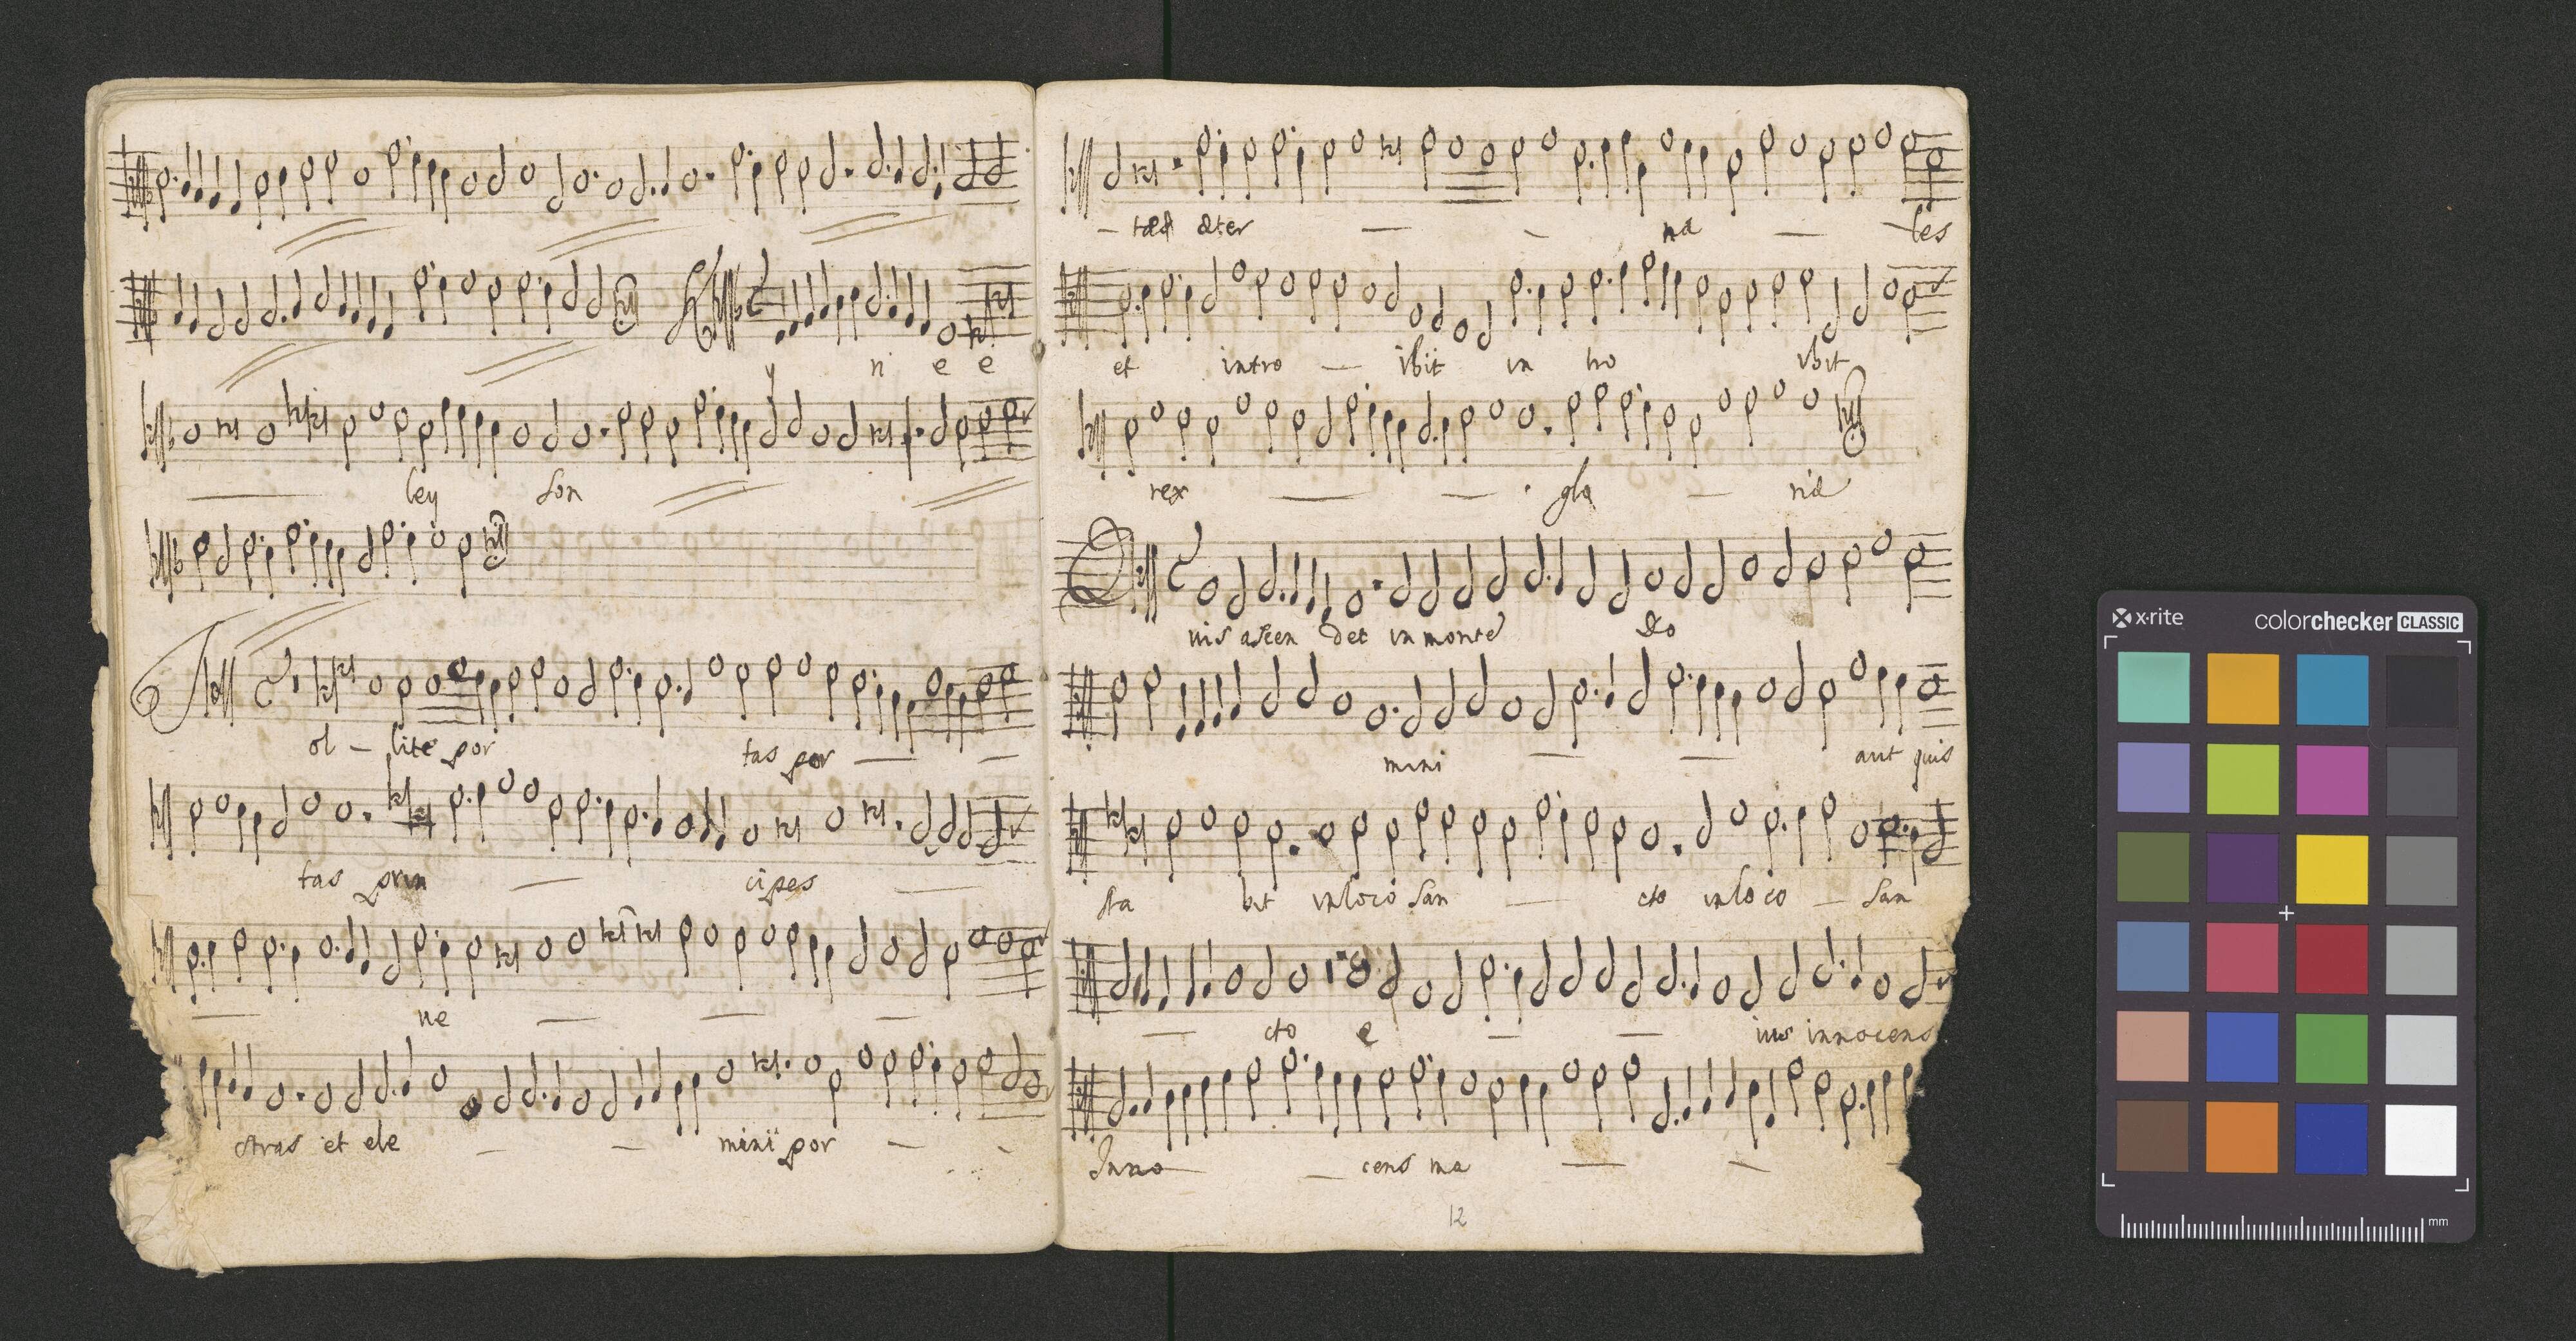 K
y ri e e
ley son
T
ol - lite por tas por
tas prin cipes
ne
stras et ele mini por
- tas æter na les
et intro - ibit in tro ibit
rex glo riæ
Q
uis ascen det in monte Do
mini aut quis
sta bit in loco san cto in loco san
cto e ius innocens
Inno cens ma
12
x·rite
colorchecker CLASSIC
mm